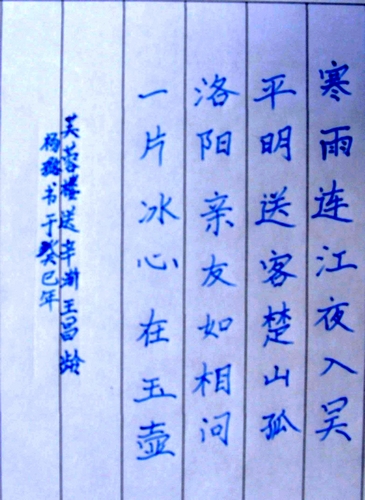 寒雨连江夜入吴
平明送客楚山孤
洛阳亲友如相问
一片冰心在玉壶
芙蓉楼送辛渐王昌龄
杨璐书于癸巳年